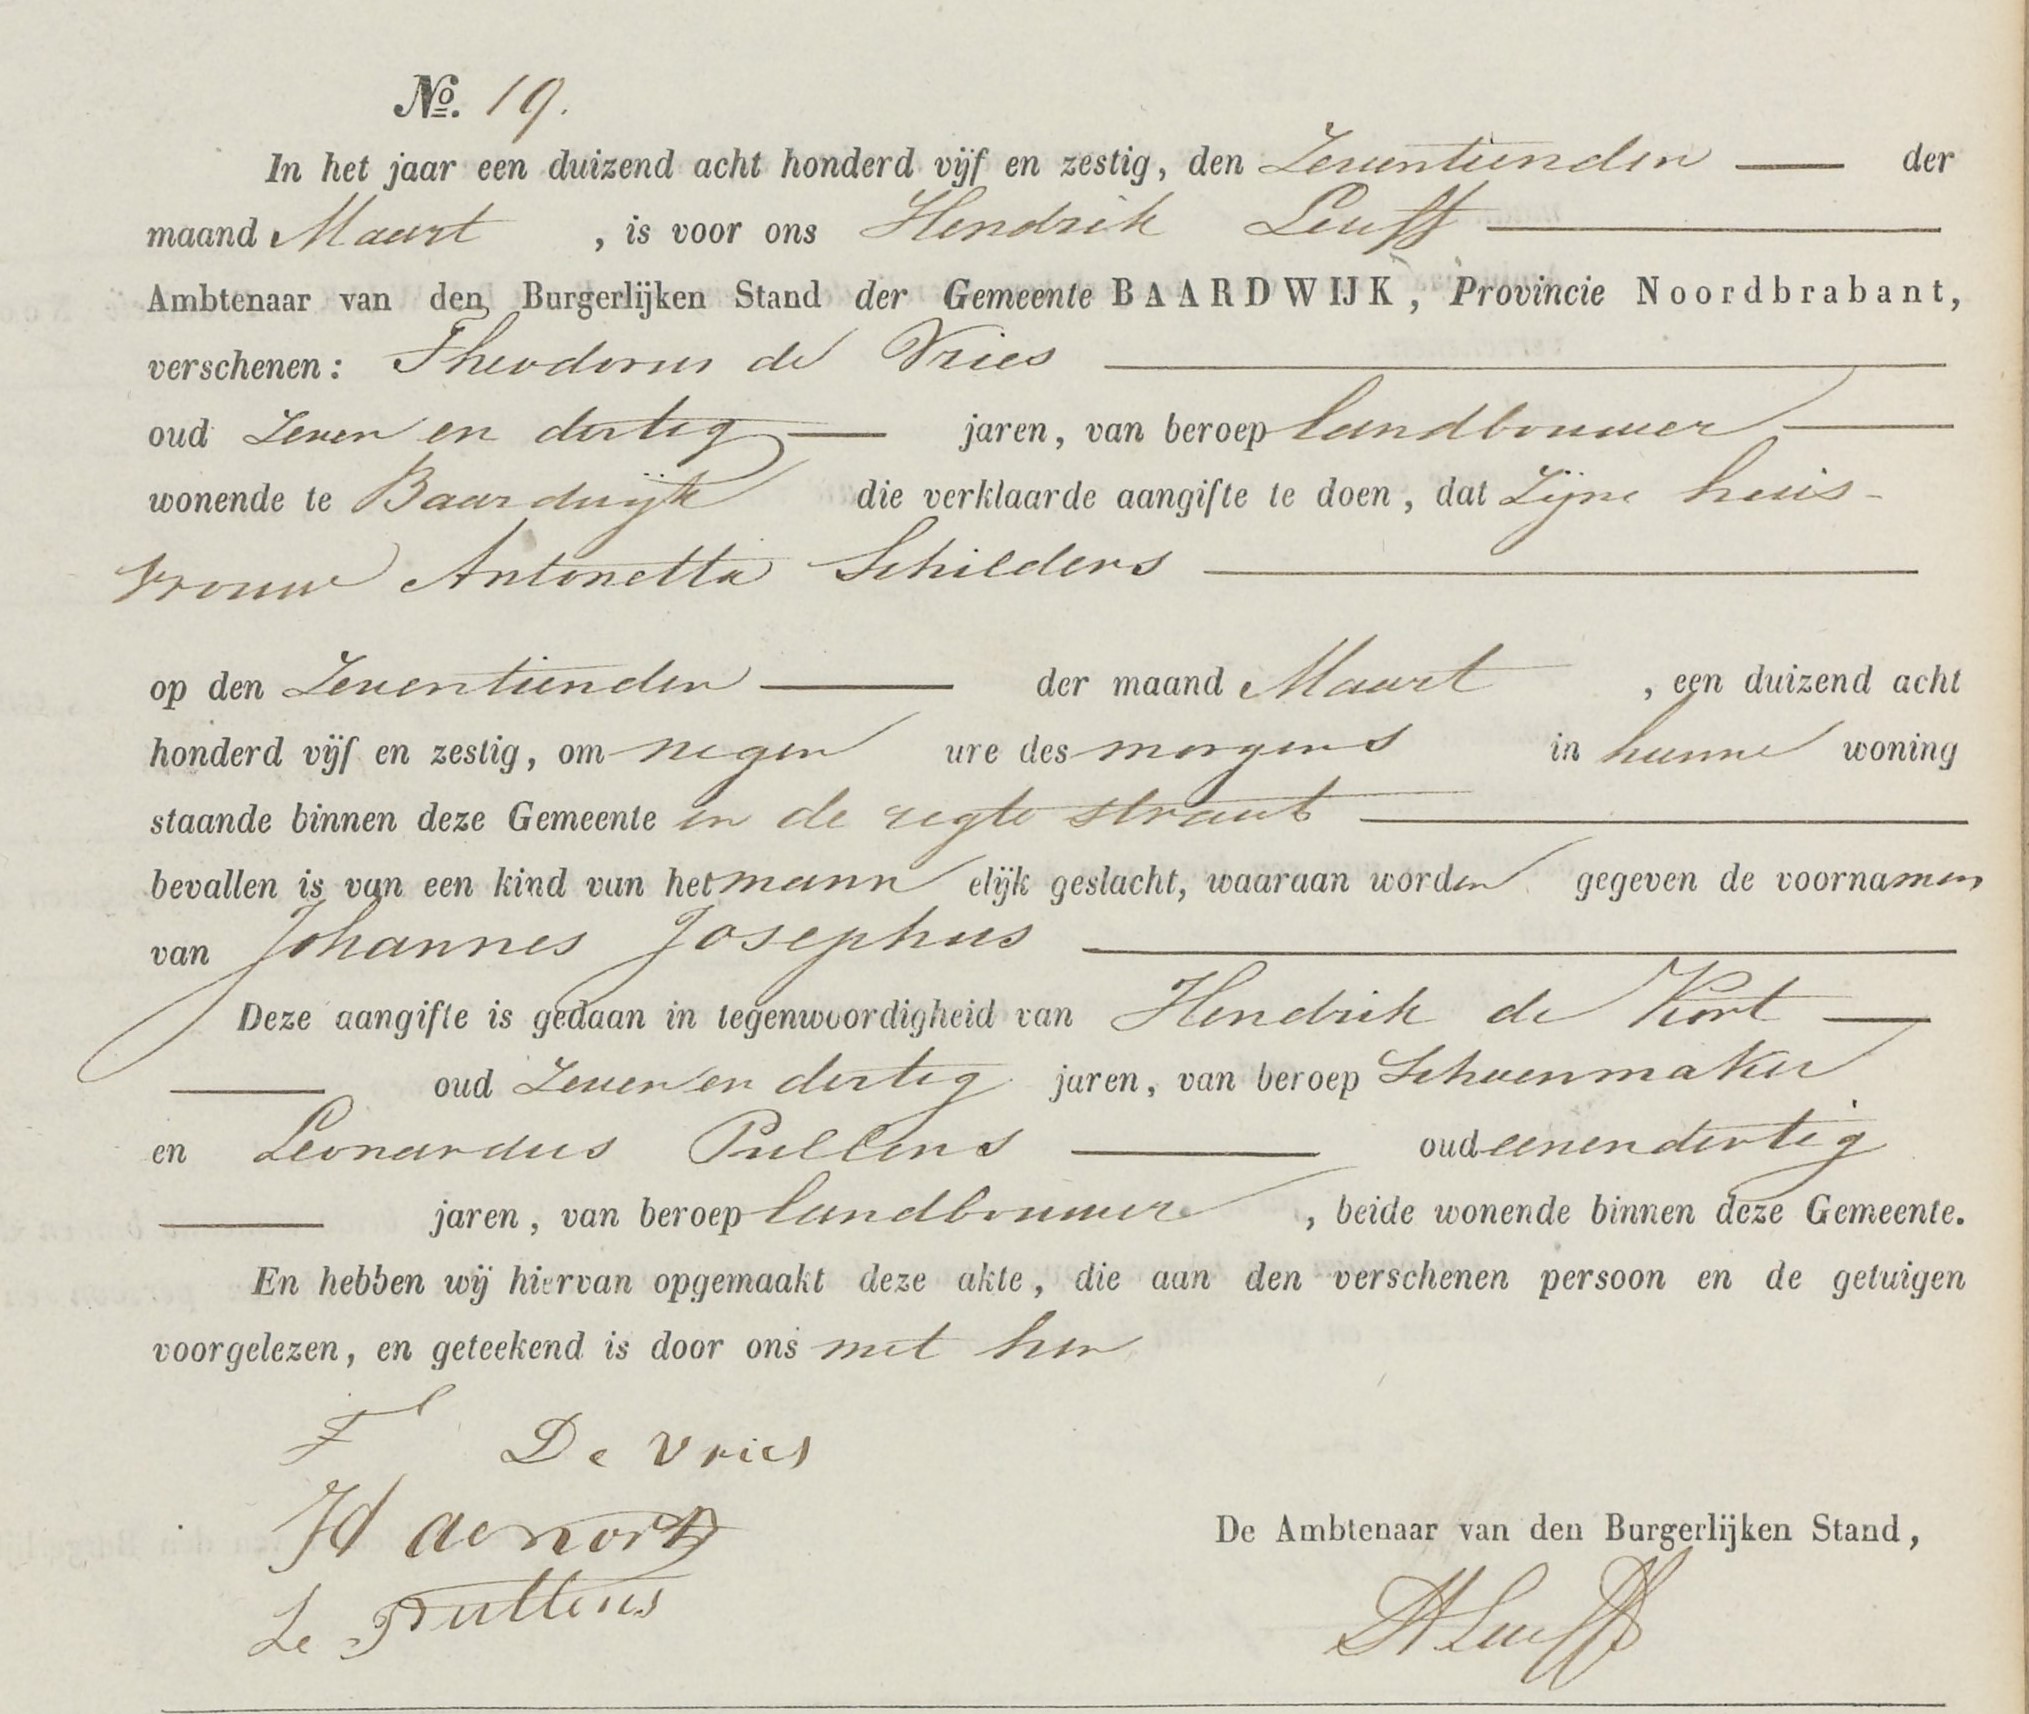 No. 19.
In het jaar een duizend acht honderd vijf en zestig, den Zeventienden der
maand Maart , is voor ons Hendrik Leufft
Ambtenaar van den Burgerlijken Stand der Gemeente BAARDWIJK, Provincie Noordbrabant,
verschenen: Theodorus de Vries
oud Zeven en dertig jaren, van beroep landbouwer
wonende te Baardwijk die verklaarde aangifte te doen, dat Zijne huis-
vrouw Antonetta Schilders
op den Zeventienden der maand Maart , een duizend acht
honderd vijf en zestig, om negen ure des morgens in hunne woning
staande binnen deze Gemeente in de regte straat
bevallen is van een kind van het mann elijk geslacht, waaraan worden gegeven de voornamen
van Johannes Josephus
Deze aangifte is gedaan in tegenwoordigheid van Hendrik de Kort
oud Zeven en dertig jaren, van beroep Schoenmaker
en Leonardus Pullens oud eenendertig
jaren, van beroep landbouwer , beide wonende binnen deze Gemeente.
En hebben wij hiervan opgemaakt deze akte, die aan den verschenen persoon en de getuigen
voorgelezen, en geteekend is door ons met hen
De Vries
H de Kort
De Ambtenaar van den Burgerlijken Stand,
Le Pullens
H Leufft